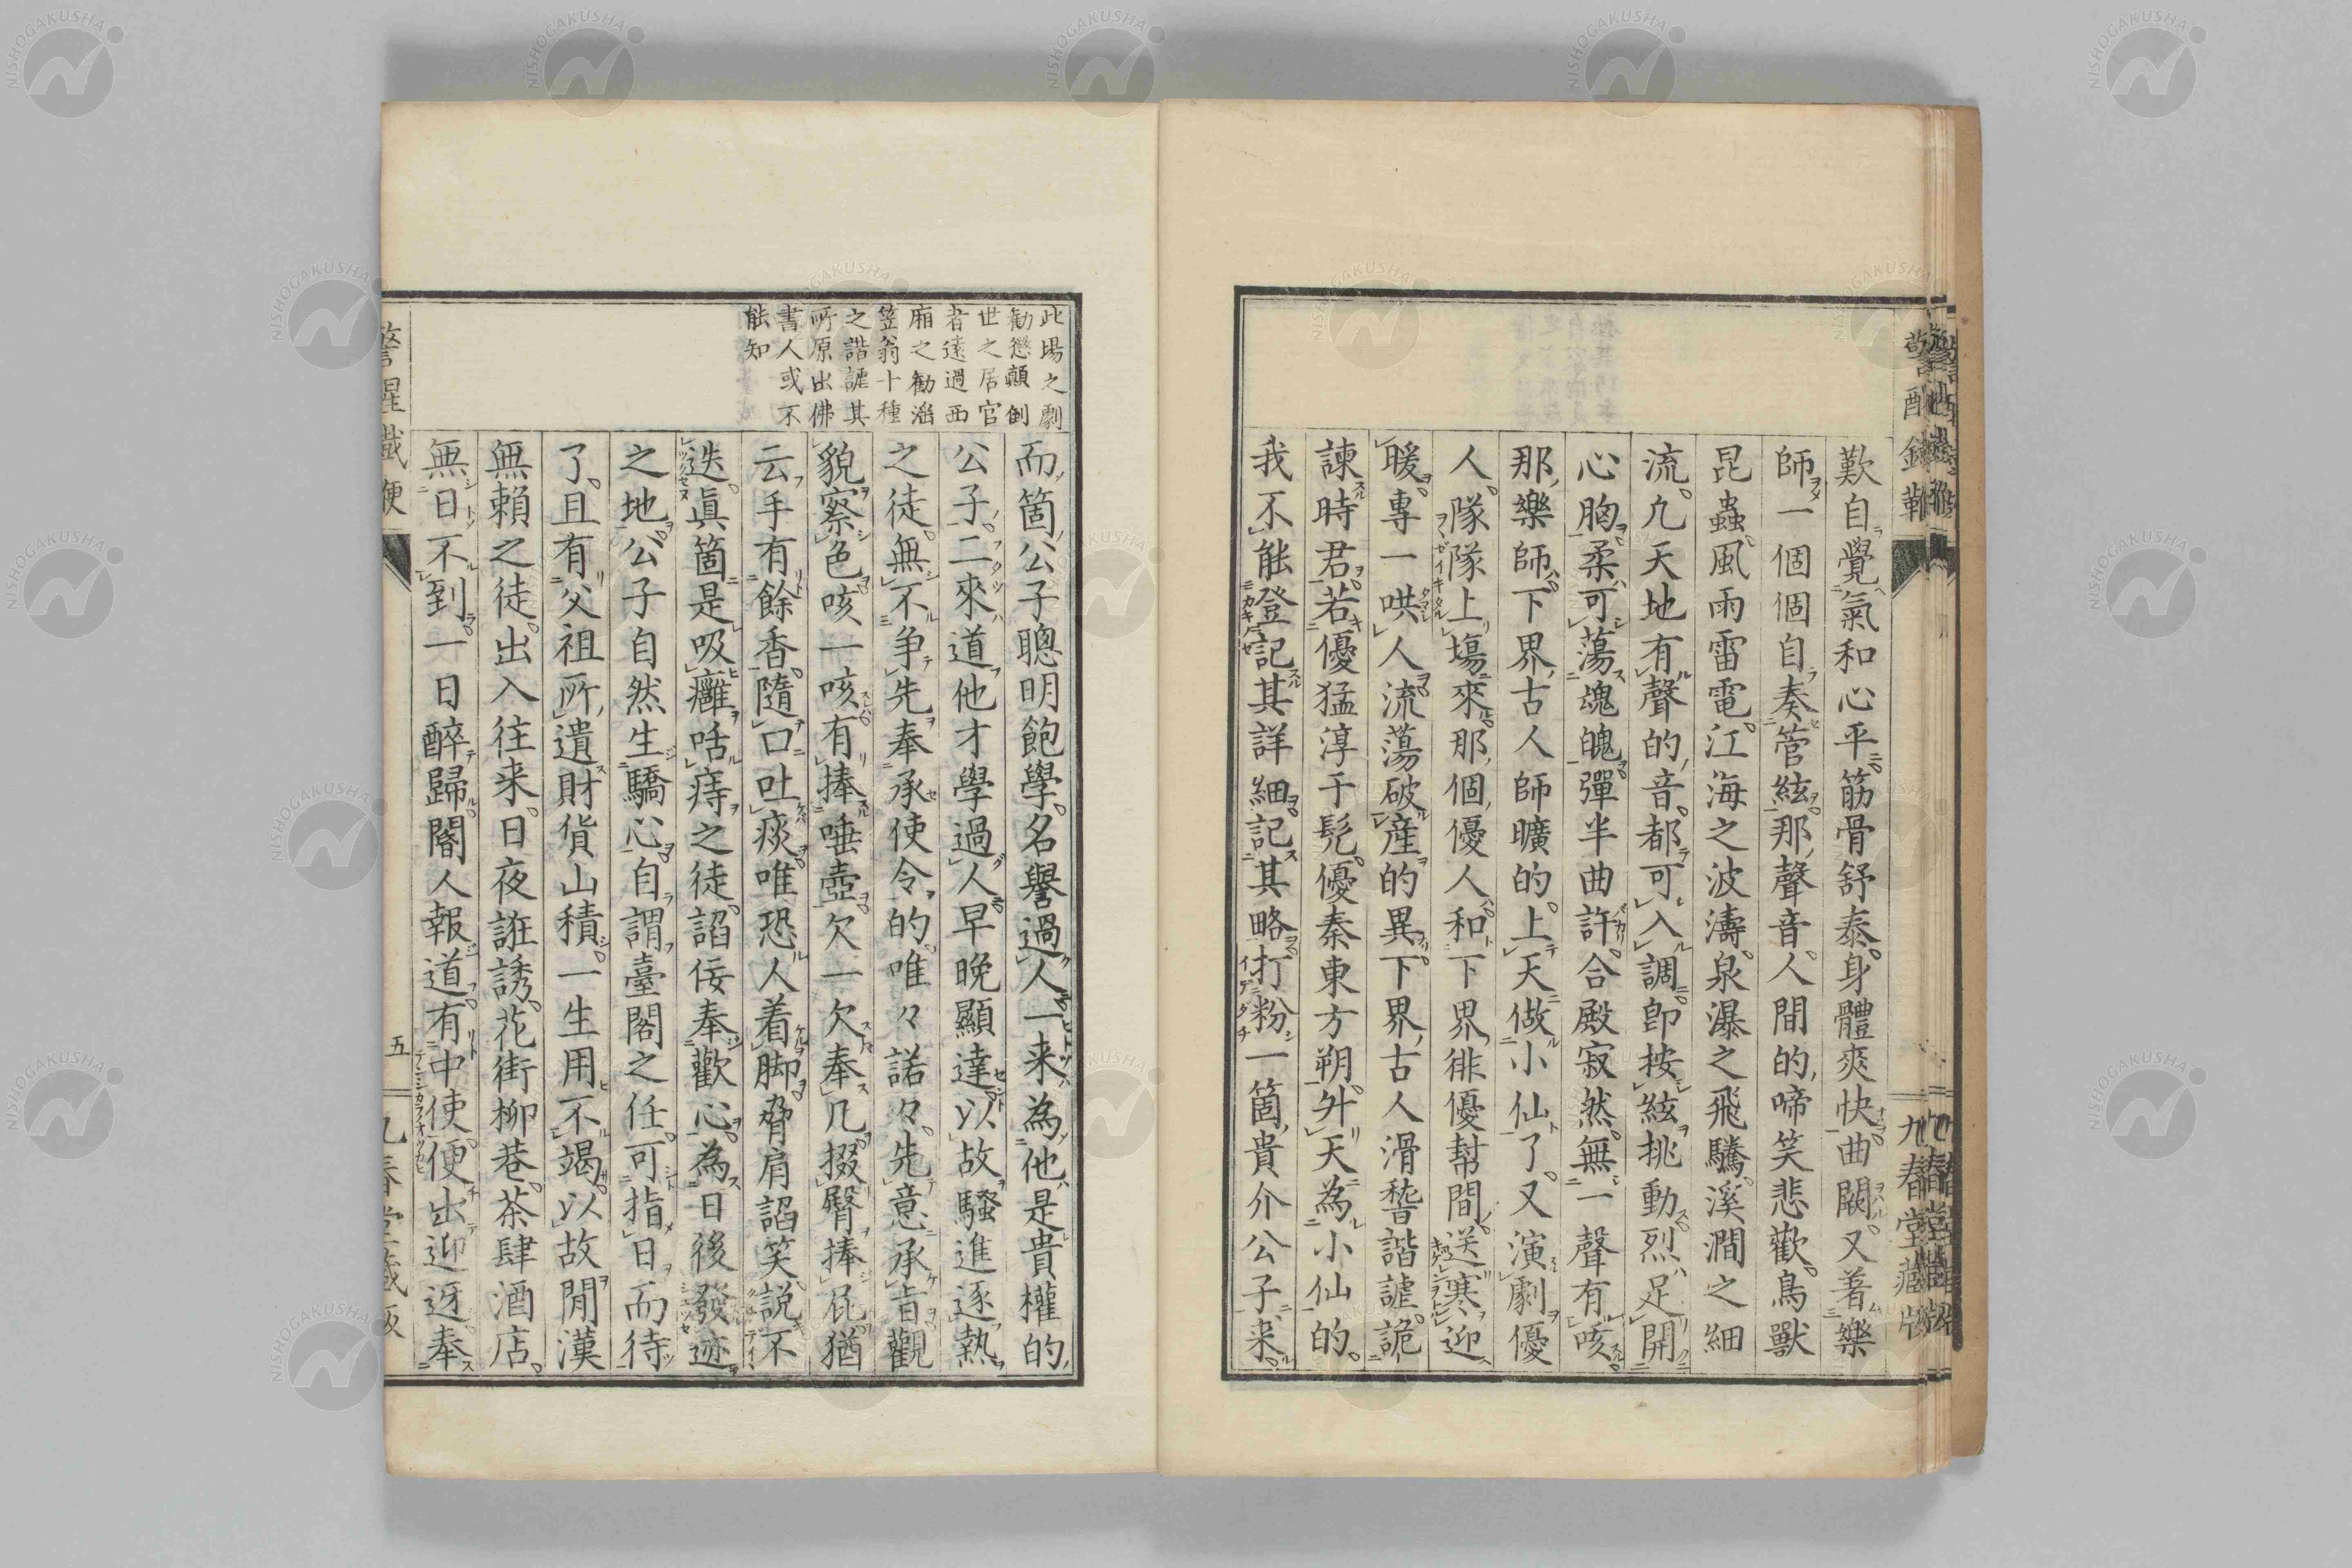 歎自覺氣和心平筋骨舒泰身體爽快曲闋又著樂
師一個個自奏管絃那聲音人間的啼笑悲歡鳥獸
昆蟲風雨雷電江海之波濤泉瀑之飛騰溪澗之細
流凢天地有聲的音都可入調卽按絃挑動烈足開
心胸柔可蕩魂魄彈半曲許合殿寂然無一聲有咳
那樂師下界古人師曠的上天做小仙了又演劇優
人隊隊上塲來那個優人和下界俳優幇間送寒迎
暖專一哄人流蕩破産的異下界古人滑稽諧謔詭
諫時君若優猛淳于髡優秦東方朔外天為小仙的
我不能登記其詳細記其略打粉一箇貴介公子来
此塲之劇
勧懲顛倒
世之居官
者遠過西
廂之勧淫
笠翁十種
之諧謔其
所原出佛
書人或不
能知
而箇公子聰明飽學名譽過人一来為他是貴權的
公子二來道他才學過人早晚顯達以故騷進逐熱
之徒無不爭先奉承使令的唯々諾々先意承旨觀
貌察色咳一咳有捧唾壺欠一欠奉几掇臀捧屁猶
云手有餘香隨口吐痰唯恐人着脚脅肩謟笑説不
迭眞箇是吸癰咶痔之徒謟佞奉歡心為日後發迹
之地公子自然生驕心自謂臺閣之任可指日而待
了且有父祖所遺財貨山積一生用不竭以故閒漢
無賴之徒出入往来日夜誑誘花街柳巷茶肆酒店
無日不到一日醉歸閽人報道有中使便出迎迓奉
五
九春堂藏版